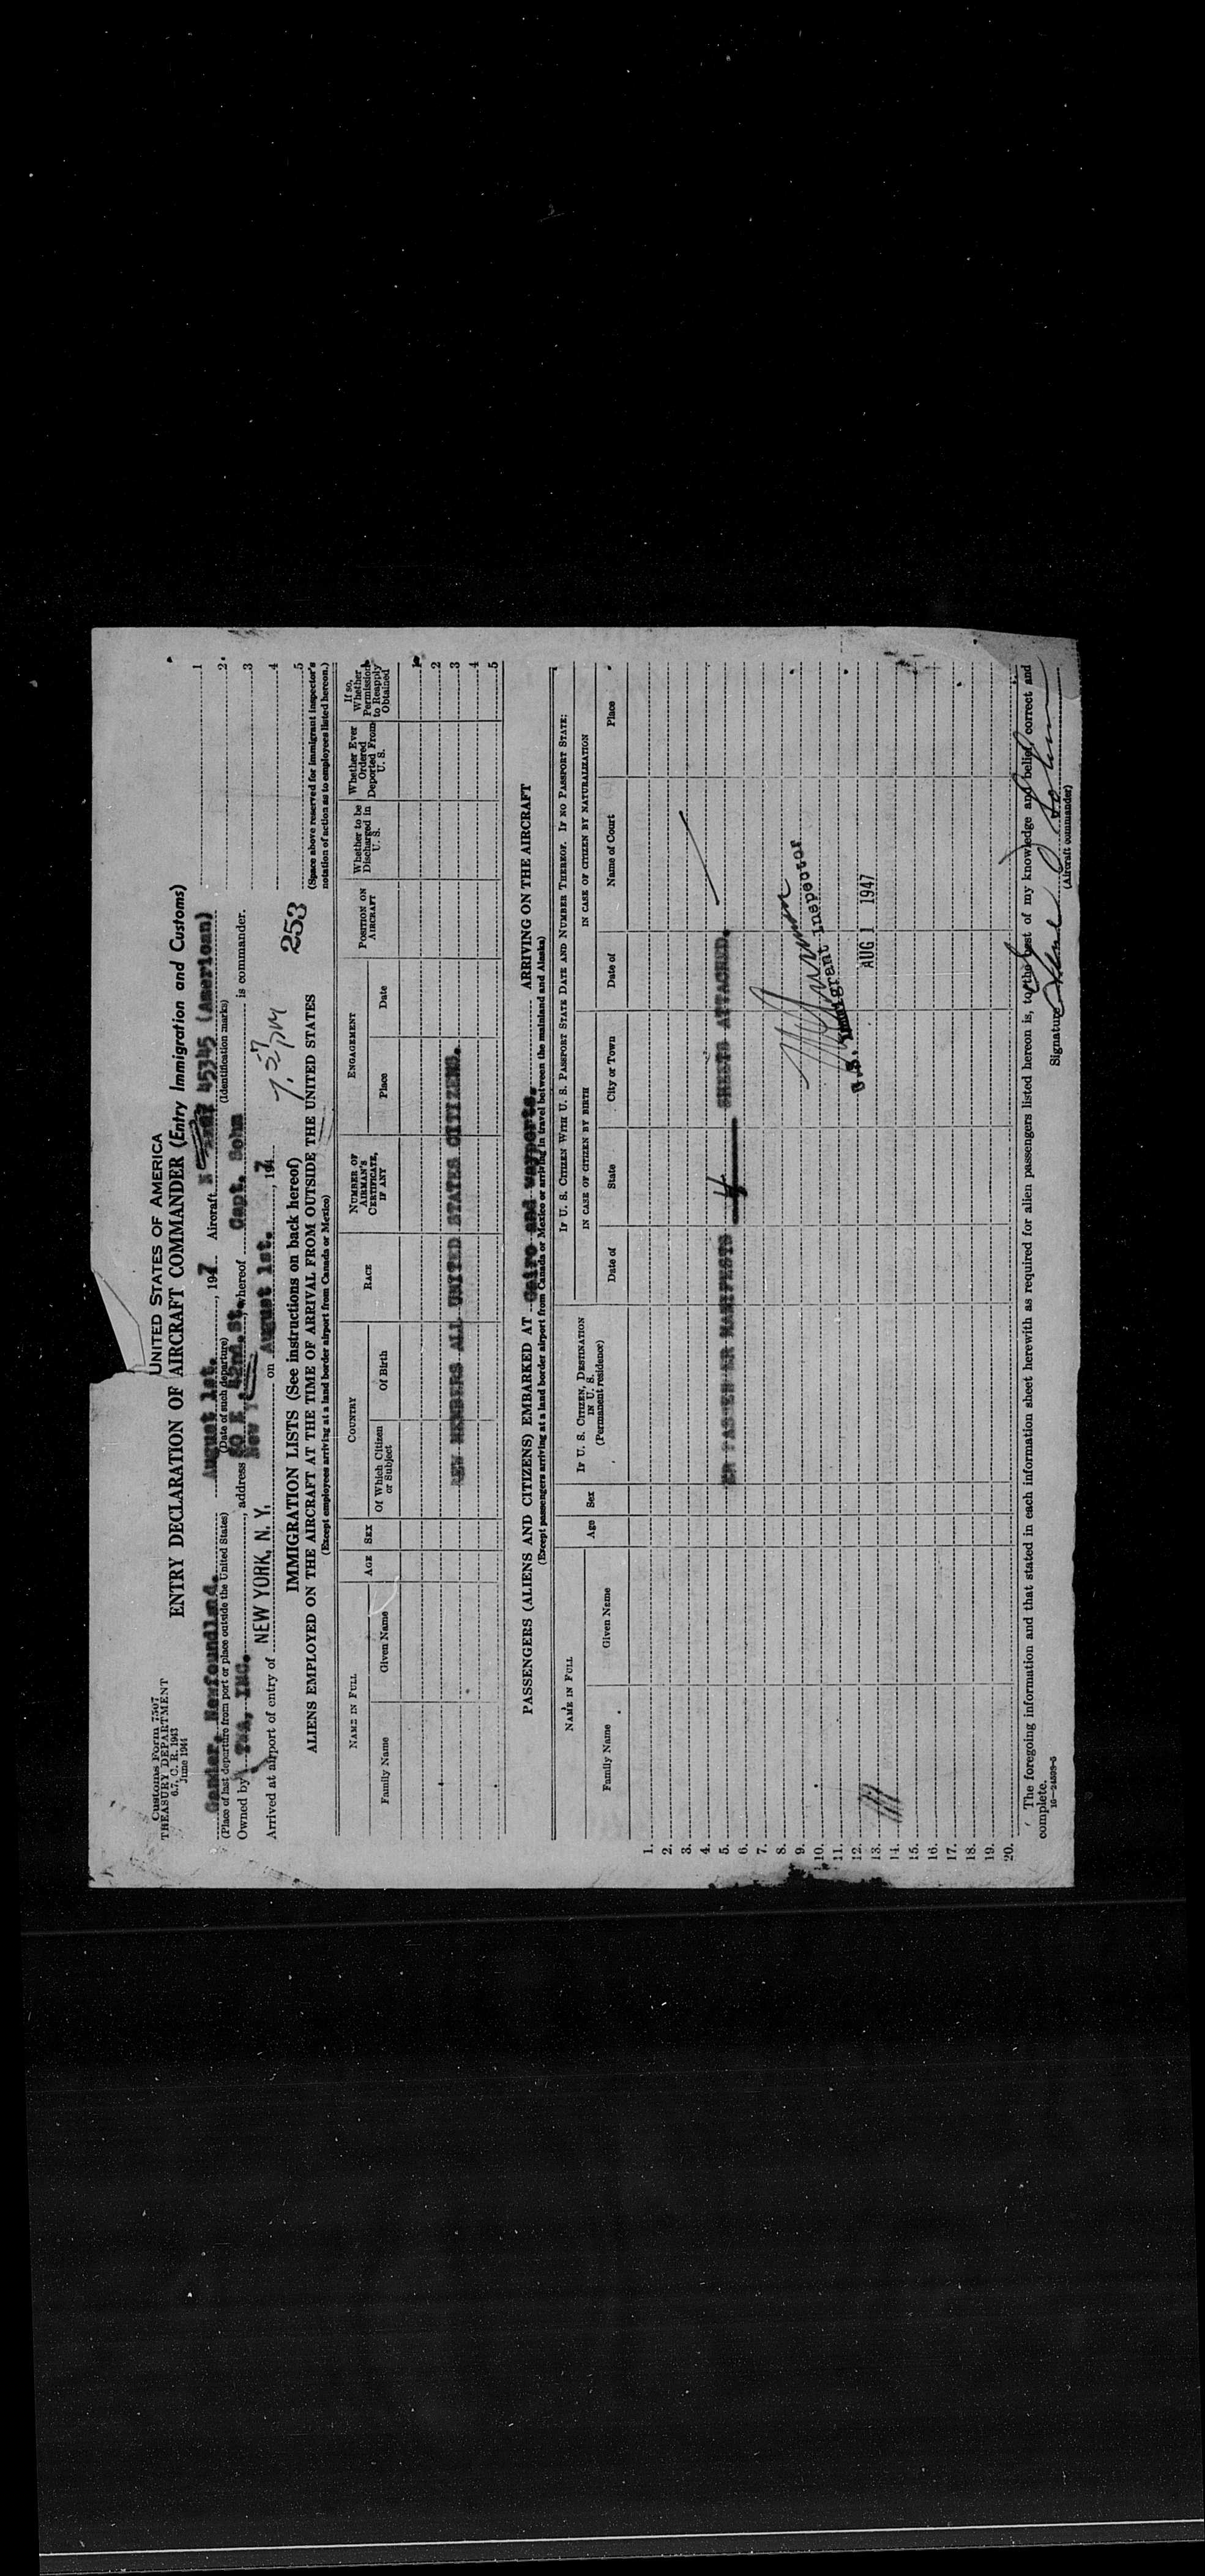 Customs Form 7507
TREASURY DEPARTMENT
6.7, C. R. 1943
June 1944
UNITED STATES OF AMERICA
ENTRY DECLARATION OF AIRCRAFT COMMANDER (Entry Immigration and Customs)
Gander, Newfoundland. August 1st. , 1947 Aircraft N 45345 (American) 1
(Place of last departure from port or place outside the United States) (Date of such departure) (Identification marks) 2
Owned by TWA, INC. , address 60 E. 42nd. St. , whereof Capt. Sohn is commander. 3
New Y
Arrived at airport of entry of NEW YORK, N. Y. on August 1st. , 1947 7:57 PM 4
IMMIGRATION LISTS (See instructions on back hereof) 253 5
ALIENS EMPLOYED ON THE AIRCRAFT AT THE TIME OF ARRIVAL FROM OUTSIDE THE UNITED STATES
(Space above reserved for immigrant inspector's
notation of action as to employees listed hereon.)
(Except employees arriving at a land border airport from Canada or Mexico)
NAME IN FULL AGE SEX COUNTRY RACE NUMBER OF AIRMAN'S CERTIFICATE, IF ANY ENGAGEMENT POSITION ON AIRCRAFT Whether to be Discharged in U. S. Whether Ever Ordered Deported From U. S. If so, Whether Permission to Reapply Obtained
Family Name Given Name Of Which Citizen or Subject Of Birth Place Date
1
2
EW MEMBERS ALL UNITED STATES CITIZENS. 3
4
5
PASSENGERS (ALIENS AND CITIZENS) EMBARKED AT Cairo and wayports. ARRIVING ON THE AIRCRAFT
(Except passengers arriving at a land border airport from Canada or Mexico or arriving in travel between the mainland and Alaska)
NAME IN FULL Age Sex IF U. S. CITIZEN, DESTINATION IN U. S. (Permanent residence) IF U. S. CITIZEN WITH U. S. PASSPORT STATE DATE AND NUMBER THEREOF. IF NO PASSPORT STATE:
IN CASE OF CITIZEN BY BIRTH IN CASE OF CITIZEN BY NATURALIZATION
Family Name Given Name Date of State City or Town Date of Name of Court Place
1.
2.
3.
4.
5. MANIFESTS 4 SHEETS ATTACHED.
6.
7.
8.
9.
10. U. S. Immigrant Inspector
11.
12. AUG 1 1947
13.
14.
15.
16.
17.
18.
19.
20.
The foregoing information and that stated in each information sheet herewith as required for alien passengers listed hereon is, to the best of my knowledge and belief, correct and
complete.
16—24599-5
Signature
(Aircraft commander)